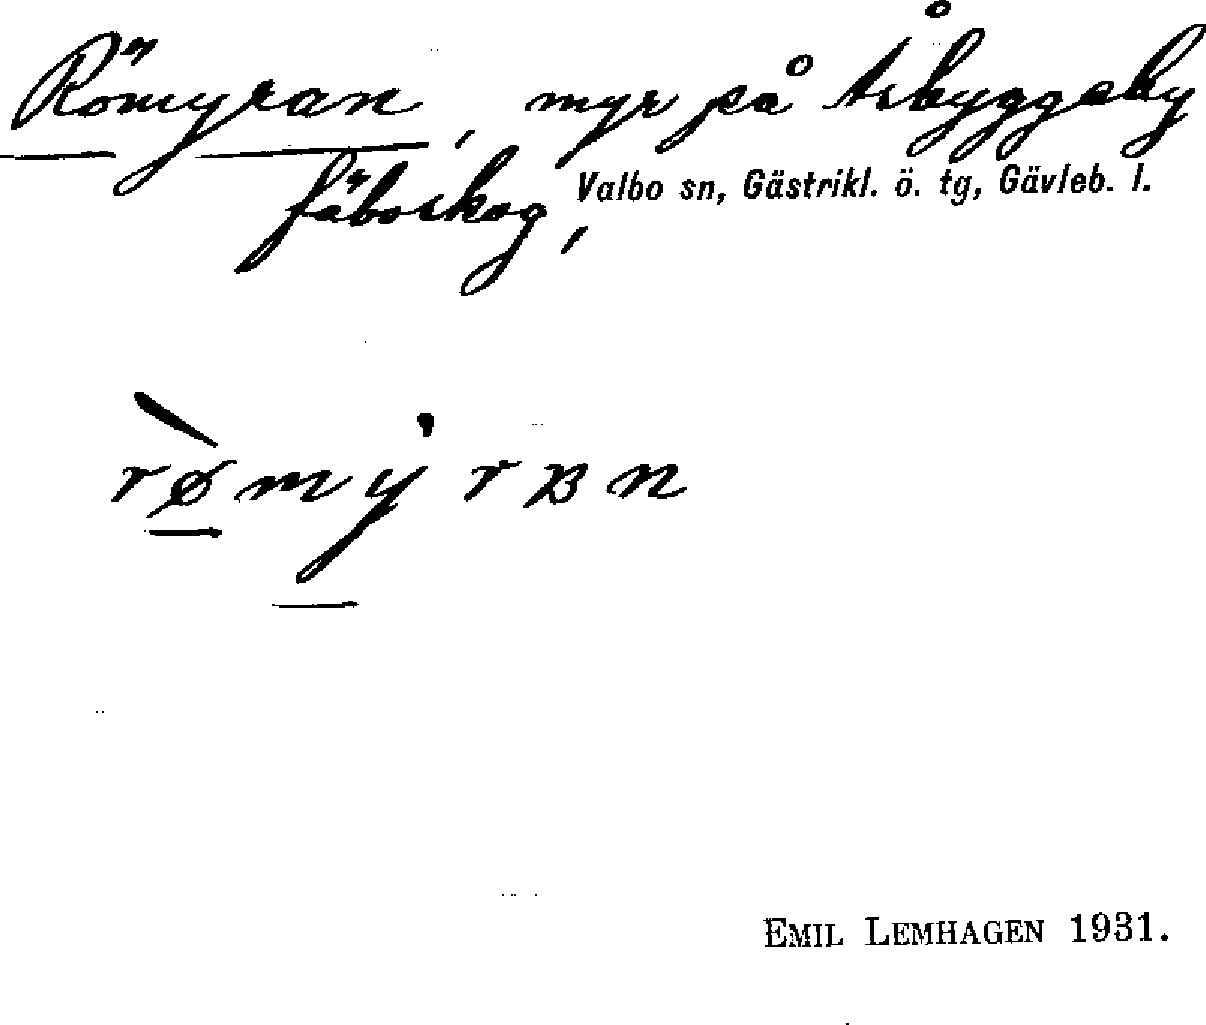 Römyran, myr på Åsbyggeby
fäboskog, Valbo sn, Gästrikl. ö. tg, Gävleb. l.
rømyrʙn
EMIL LEMHAGEN 1931.